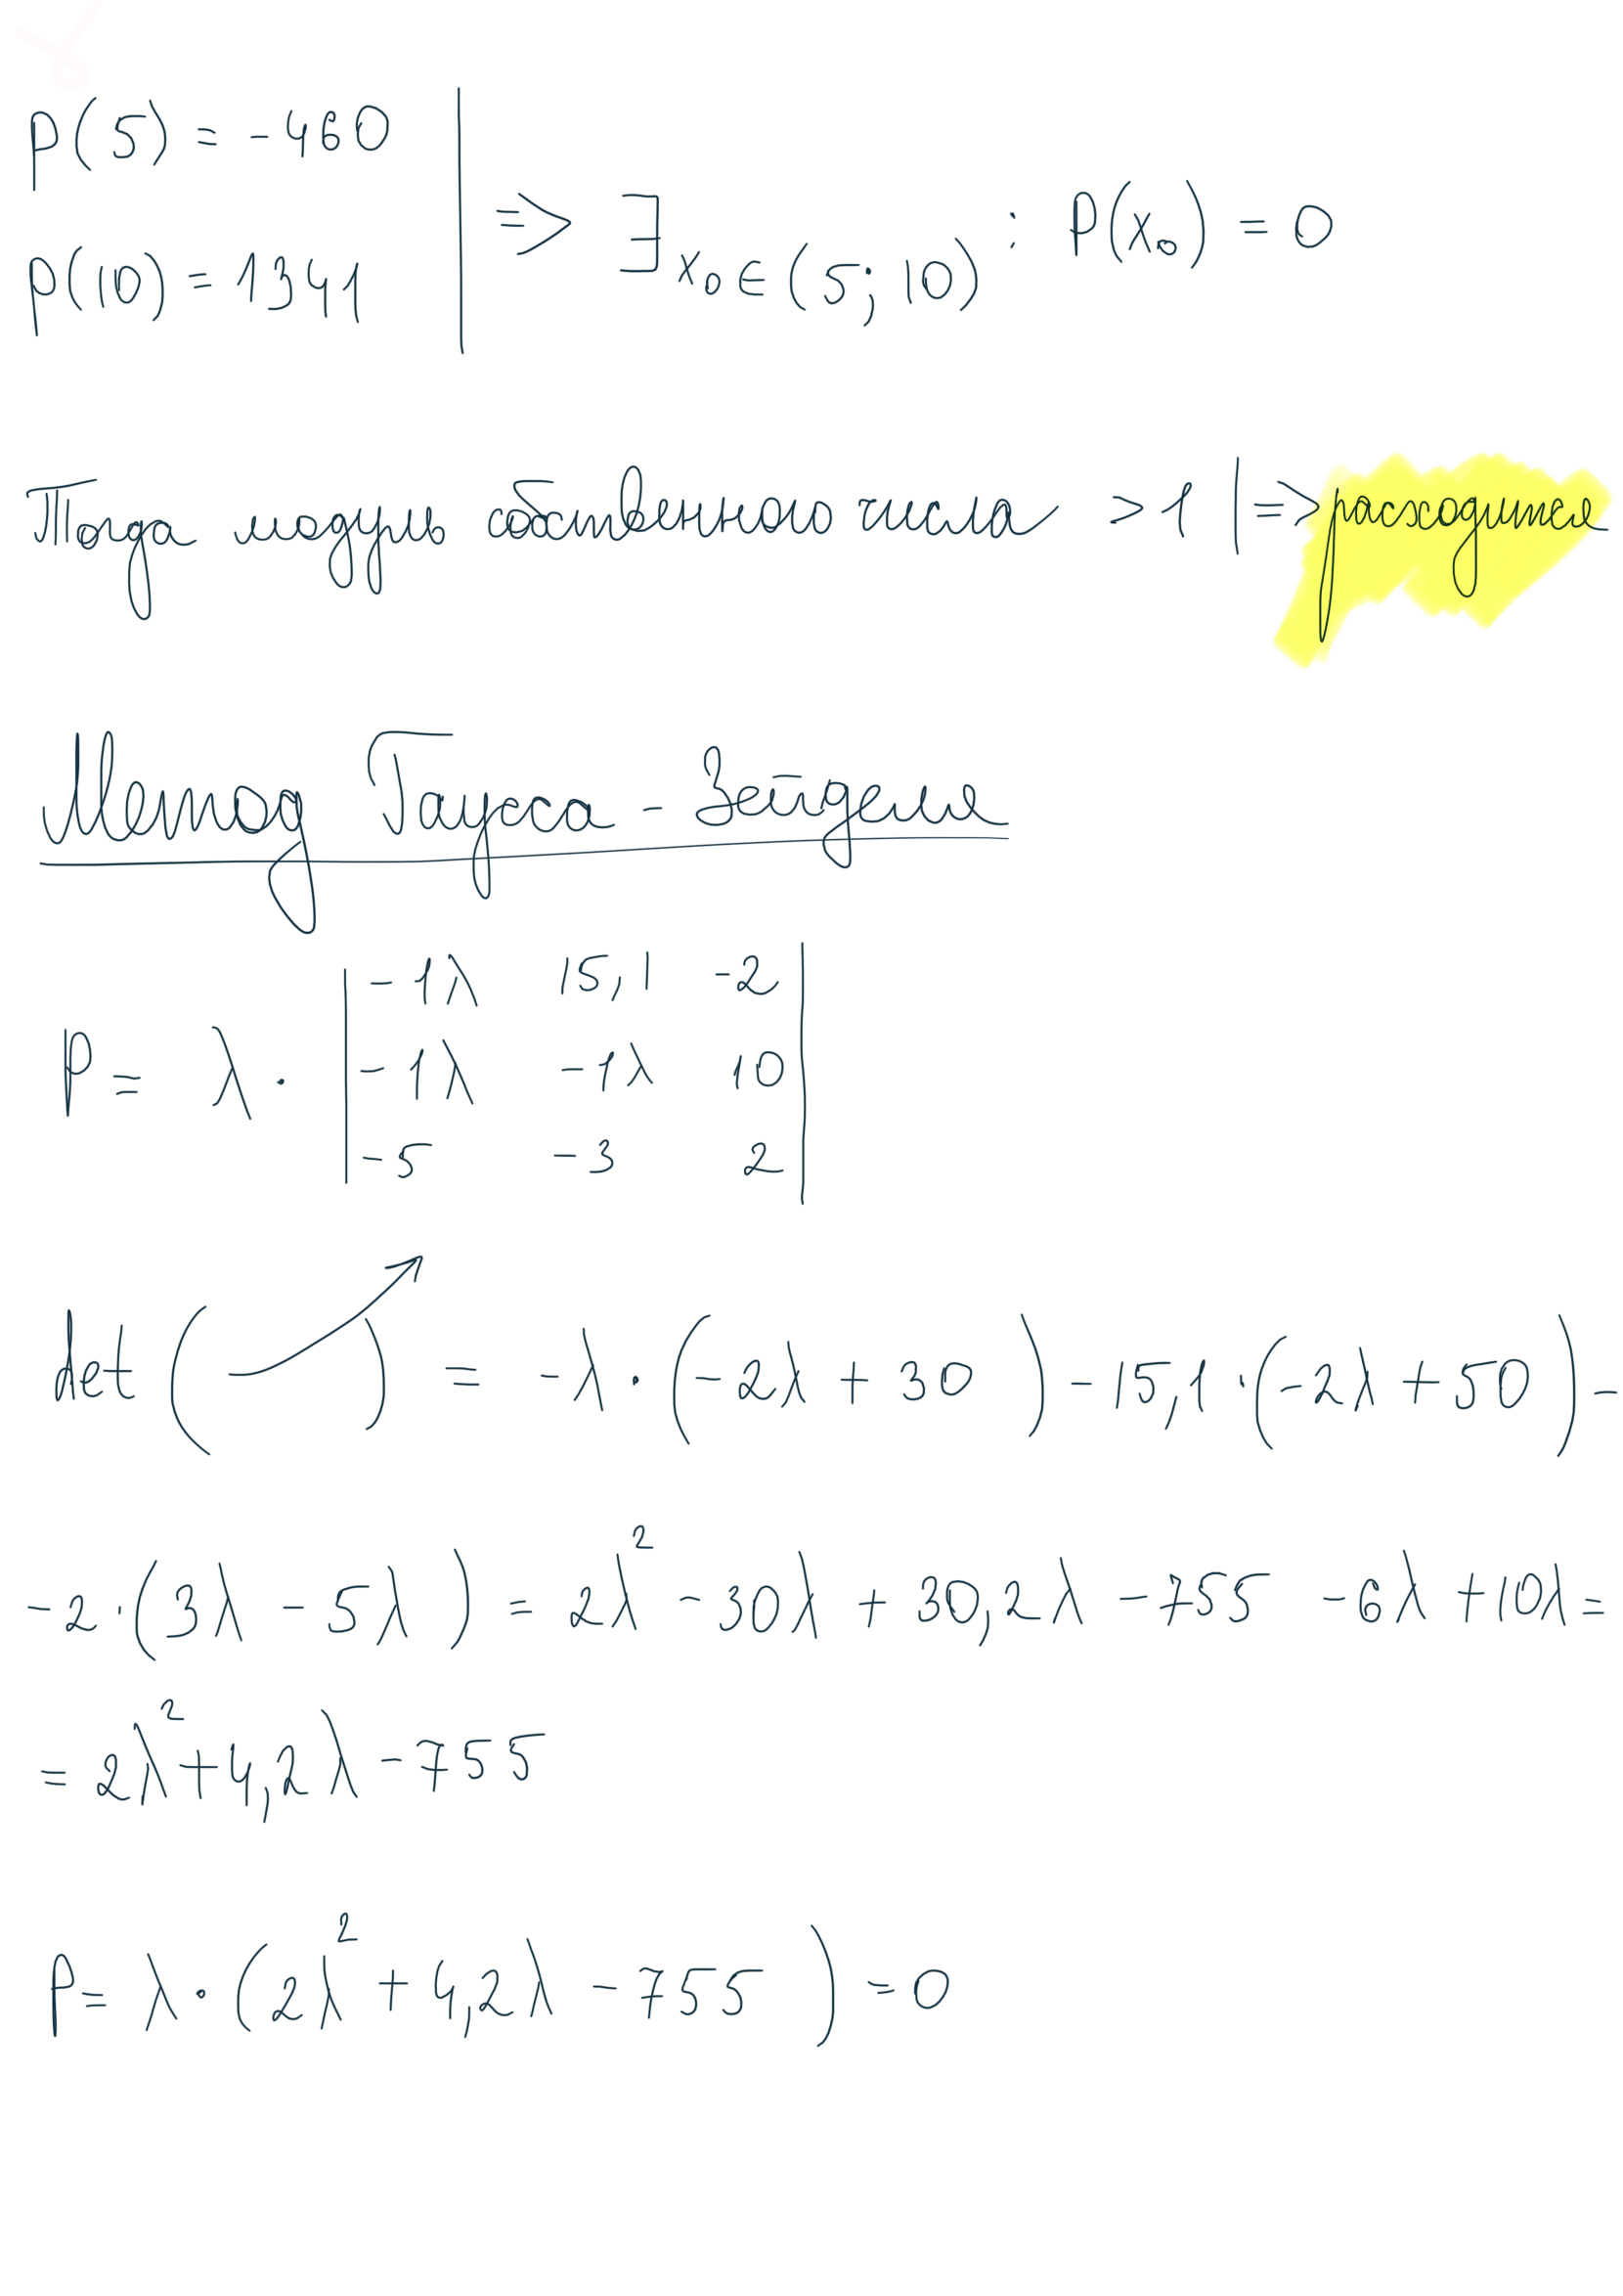 P(5) = -480
P(10) = 1341
=> ∃ x₀ ∈ (5; 10) : P(x₀) = 0
Тогда модуль собственного числа > 1 | => расходится
Метод Гаусса - Зейделя
P = λ · | -1λ 15,1 -2 |
| -1λ -1λ 10 |
| -5 -3 2 |
det ( ↗ ) = -λ · (-2λ + 30) - 15,1 · (-2λ + 50) -
-2 · (3λ - 5λ) = 2λ² - 30λ + 30,2λ - 755 - 6λ + 10λ =
= 2λ² + 4,2λ - 755
P = λ · (2λ² + 4,2λ - 755) = 0